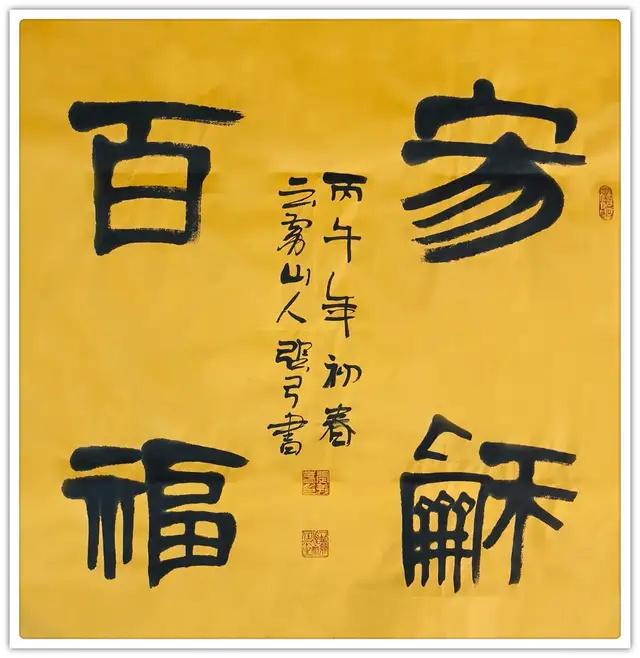 家龢
百福
丙午年初春
云雾山人張弓書